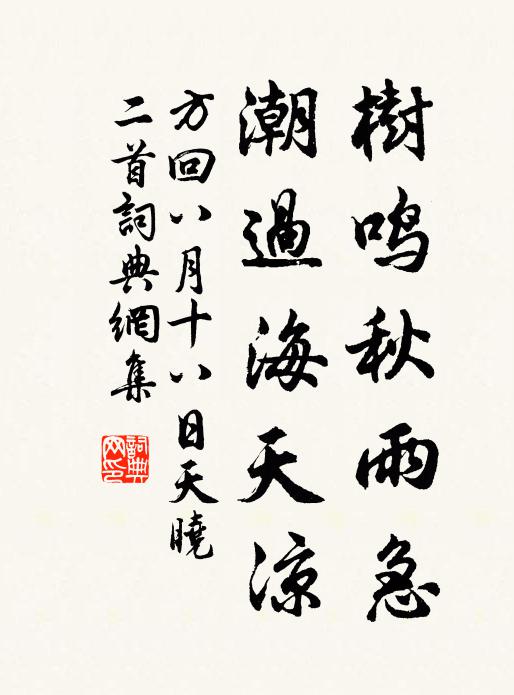 樹鸣秋雨急
潮過海天涼
方回八月十八日天曉
二首詞典網集
詞典网印